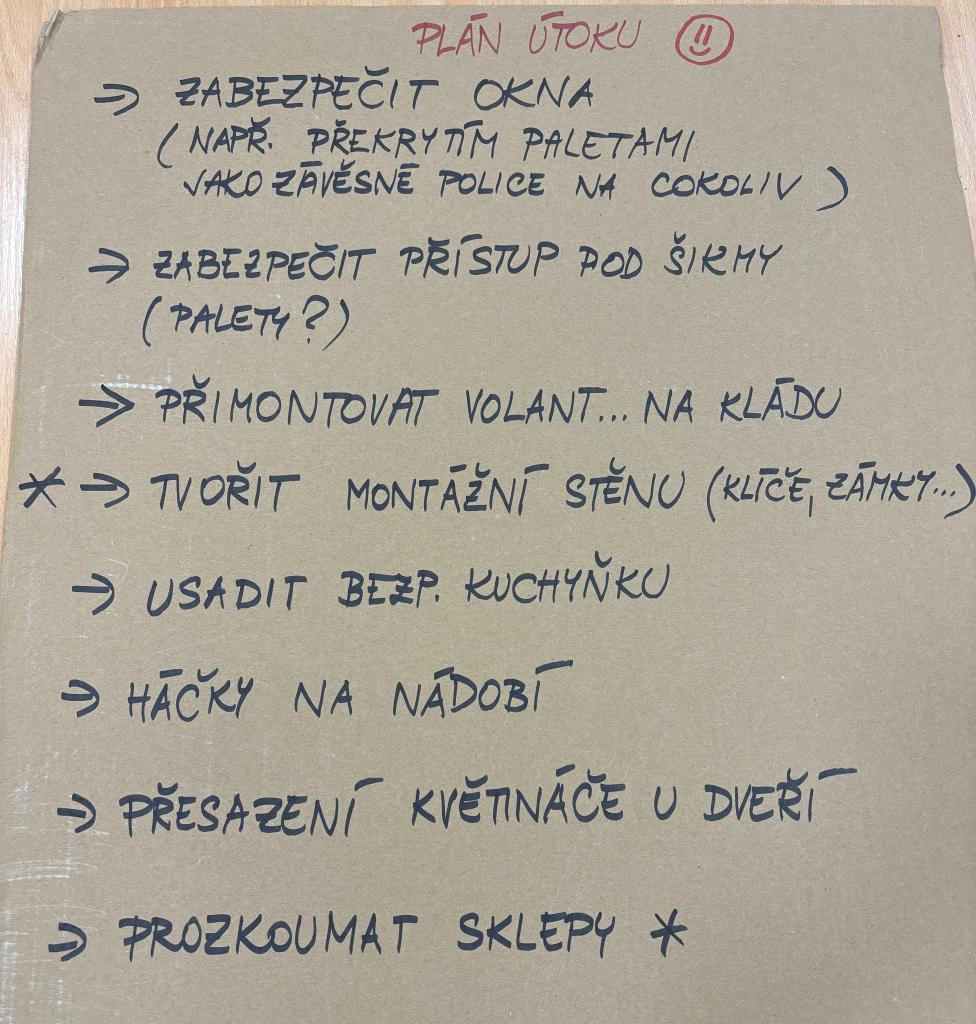 PLÁN ÚTOKU
→ ZABEZPEČIT OKNA
(NAPŘ. PŘEKRYTÍM PALETAMI
JAKO ZÁVĚSNÉ POLICE NA COKOLIV)
→ ZABEZPEČIT PŘÍSTUP POD ŠIKMY
(PALETY?)
→ PŘIMONTOVAT VOLANT... NA KLÁDU
* → TVOŘIT MONTÁŽNÍ STĚNU (KLÍČE, ZÁMKY...)
→ USADIT BEZP. KUCHYŇKU
→ HÁČKY NA NÁDOBÍ
→ PŘESAZENÍ KVĚTINÁČE U DVEŘÍ
→ PROZKOUMAT SKLEPY *